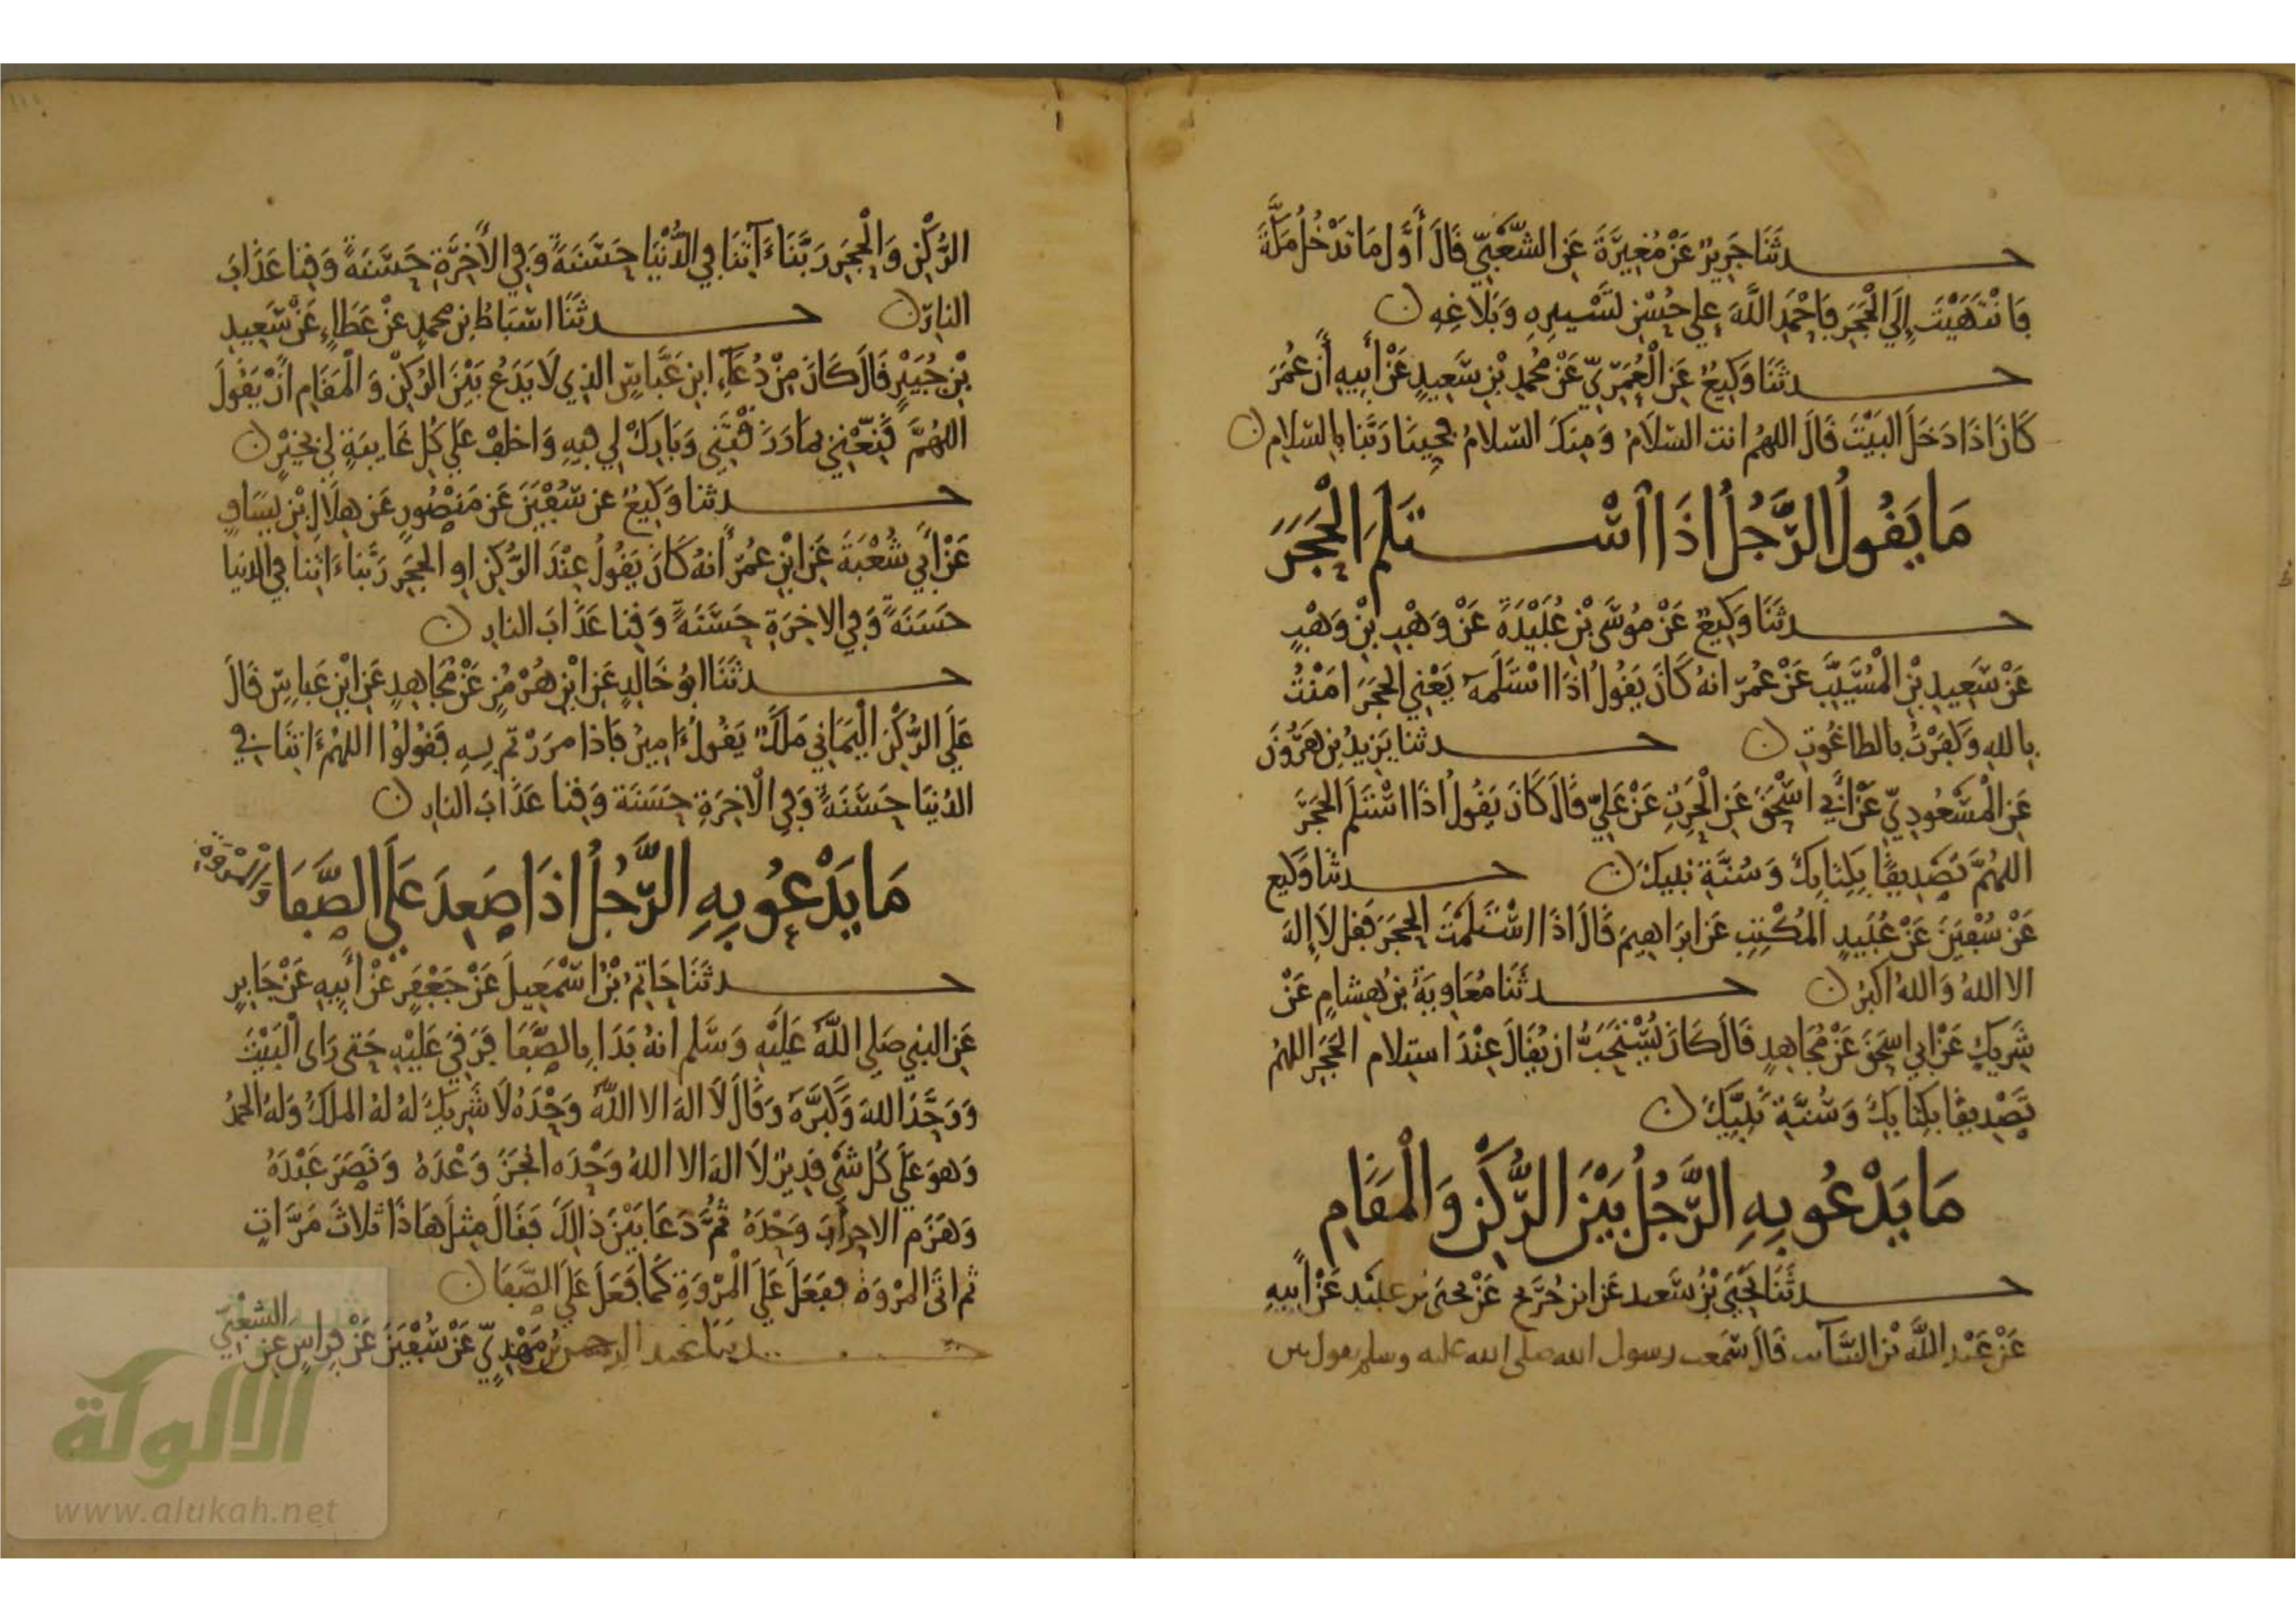 حدثنا جرير عن مغيرة عن الشعبي قال أول ما تدخل مكة
فانتهيت إلى الحجر فاحمد الله على حسن تسييره وبلاغه ن
حدثنا وكيع عن العمري عن محمد بن سعيد عن أبيه أن عمر
كان اذا دخل البيت قال اللهم انت السلام ومنك السلام فحينا ربنا بالسلام ن
ما يقول الرجل اذا استلم الحجر
حدثنا وكيع عن موسى بن عبيدة عن وهب بن وهب
عن سعيد بن المسيب عن عمر انه كان يقول اذا استلمه يعني الحجر امنت
بالله وكفرت بالطاغوت ن حدثنا يزيد بن هرون
عن المسعودي عن أبي اسحق عن الحرث عن علي قال كان يقول اذا استلم الحجر
اللهم تصديقا بكتابك وسنة نبيك ن حدثنا وكيع
عن سفين عن عبيد المكتب عن ابراهيم قال اذا استلمت الحجر فقل لا إله
الا الله والله اكبر ن حدثنا معاوية بن هشام عن
شريك عن ابي اسحق عن مجاهد قال كان يستحب ان يقال عند استلام الحجر اللهم
تصديقا بكتابك وسنة نبيك ن
ما يدعو به الرجل بين الركن والمقام
حدثنا يحيى بن سعيد عن ابن جريج عن يحيى بن عبيد عن أبيه
عن عبد الله بن السائب قال سمعت رسول الله صلى الله عليه وسلم يقول بين
الركن والحجر ربنا ءاتنا في الدنيا حسنة وفي الأخرة حسنة وقنا عذاب
النار ن حدثنا اسباط بن محمد عن عطاء عن سعيد
بن جبير قال كان من دعاء ابن عباس الذي لا يدع بين الركن والمقام أن يقول
اللهم قنعني بما رزقتني وبارك لي فيه واخلف علي كل غايبة لي بخير ن
حدثنا وكيع عن سفين عن منصور عن هلال بن يساف
عن أبي شعبة عن ابن عمر أنه كان يقول عند الركن او الحجر ربنا ءاتنا في الدنيا
حسنة وفي الاخرة حسنة وقنا عذاب النار ن
حدثنا ابو خالد عن ابن هرمز عن مجاهد عن ابن عباس قال
على الركن اليماني ملك يقول ءامين فاذا مررتم به فقولوا اللهم ءاتنا في
الدنيا حسنة وفي الاخرة حسنة وقنا عذاب النار ن
ما يدعو به الرجل اذا صعد على الصفا والمروة
حدثنا حاتم بن اسمعيل عن جعفر عن أبيه عن جابر
عن النبي صلى الله عليه وسلم انه بدا بالصفا فرقي عليه حتى راى البيت
ووحد الله وكبره وقال لا اله الا الله وحده لا شريك له له الملك وله الحمد
وهو على كل شي قدير لا اله الا الله وحده انجز وعده ونصر عبده
وهزم الاحزاب وحده ثم دعا بين ذالك فقال مثل هاذا ثلاث مرات
ثم اتى المروة ففعل على المروة كما فعل على الصفا ن
حدثنا عبد الرحمن بن مهدي عن سفين عن فراس عن الشعبي
الالوكة
www.alukah.net